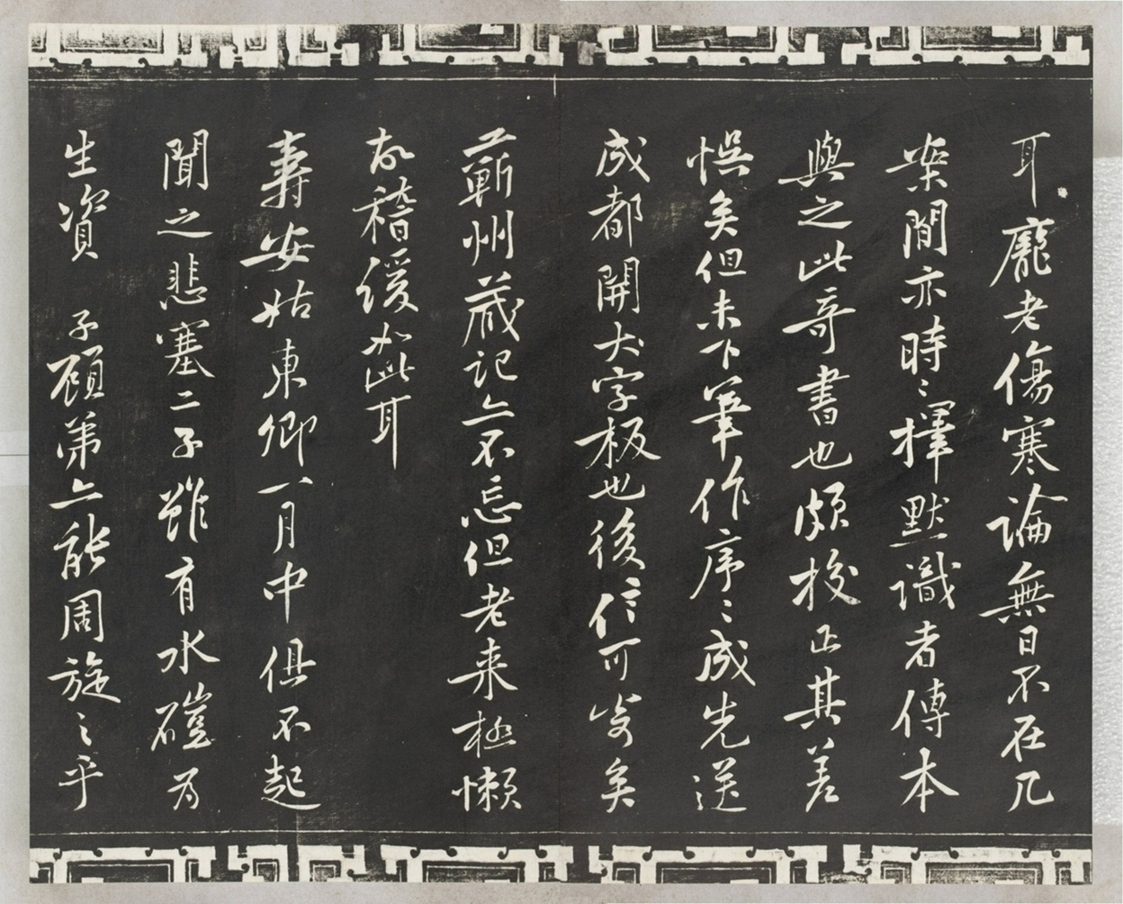 耳龐老傷寒論無日不在几
案間亦時時擇默識者傳本
與之此奇書也頗校正其差
悞矣但未下筆作序序成先送
成都開大字板也後信可寄矣
蘄州藏記亦不忘但老来極懶
故稽緩如此耳
壽安姑東卿一月中俱不起
聞之悲塞二子雖有水磑為
生資　子顧弟亦能周旋之乎